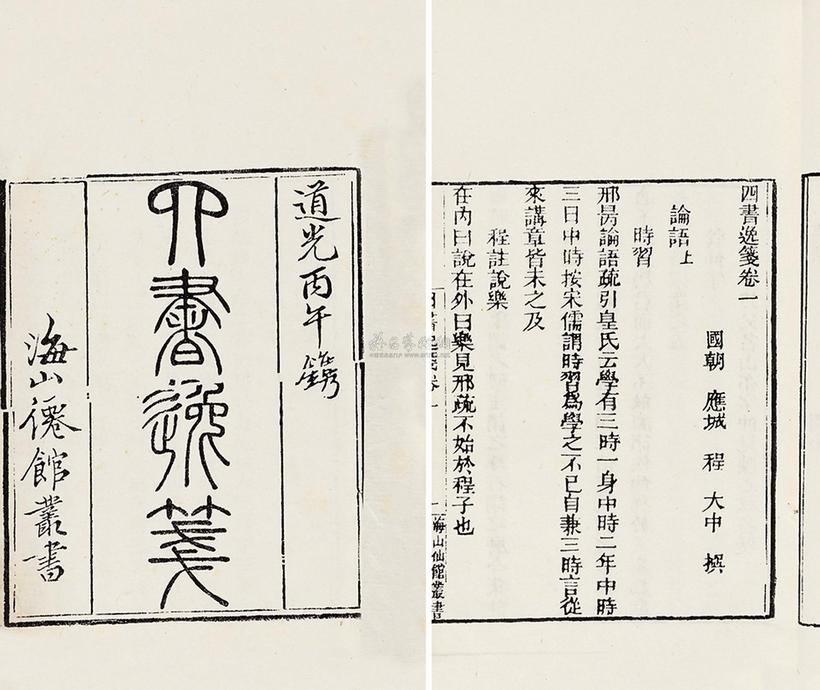 道光丙午鐫
四書逸箋
海山僊館叢書
四書逸箋卷一
國朝 應城 程 大中 撰
論語上
時習
邢昺論語疏引皇氏云學有三時一身中時二年中時
三日中時按宋儒謂時習爲學之不已自兼三時言從
來講章皆未之及
程註說樂
在內曰說在外曰樂見邢疏不始於程子也
海山仙館叢書